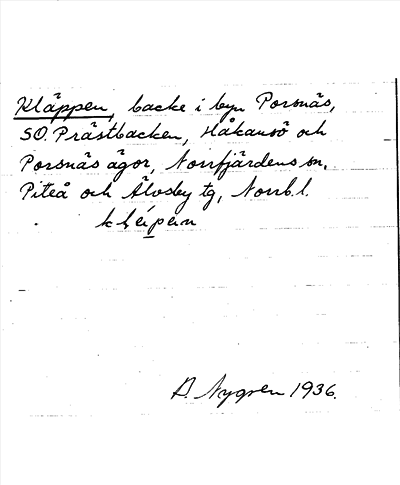 Kläppen, backe i byn Porsnäs,
SO. Prästbacken, Håkansö och
Porsnäs ägor, Norrfjärdens sn,
Piteå och Älvsby tg, Norrb. l.
A. Nygren 1936.